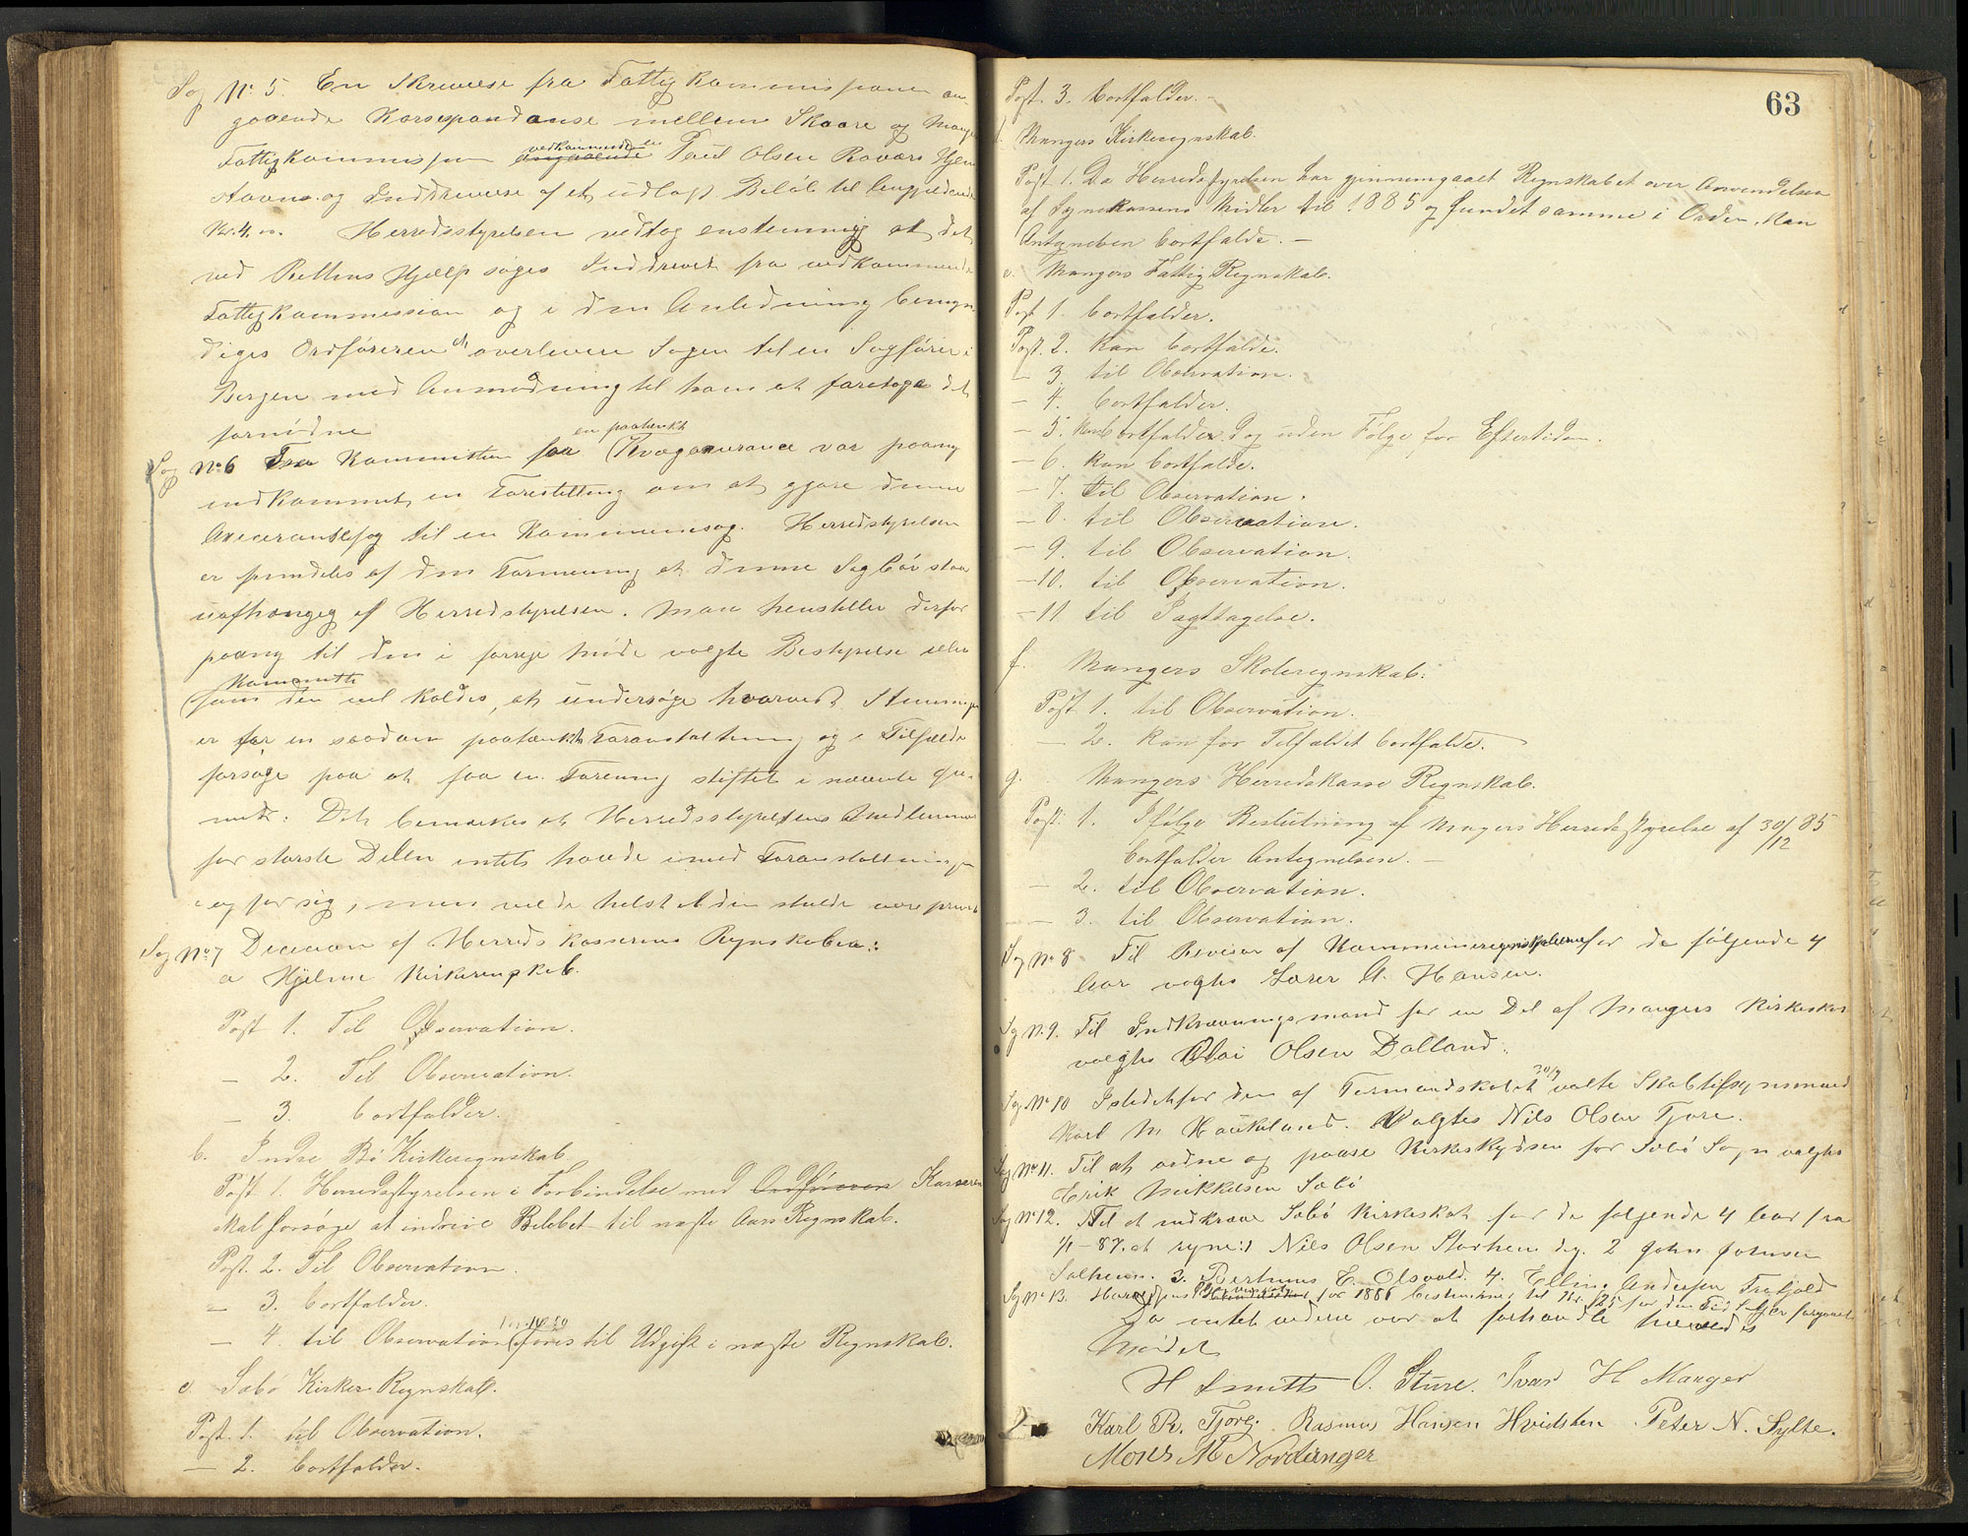 Sag No 5. En Skrivelse fra Fattigkommissionen an-
gaaende Korrespondanse mellem Skaare og Manger
Fattigkommission angaaende vedkommende Paul Olsen Rovær Hjem
stavns og Inddrivelse af et udlagt Beløb til Lægpleiende
Kr. 4.00. Herredsstyrelsen vedtog enstemmig at det
ved Rettens Hjælp søges Inddrevet fra vedkommende
Fattigkommission og i den Anledning bemyn
diges Ordføreren at overlevere Sagen til en Sagfører i
Bergen med Anmodning til ham at foretage det
fornødne
Sag No 6 Fra Kommitten for en paatænkt Kvægassurance var paany
indkommet en Forestilling om at gjøre denne
Assurancesag til en Kommunesag. Herredstyrelsen
er fremdeles af den Formening at denne Sag bør staa
uafhængig af Herredstyrelsen. Man henstiller derfor
paany til den i forrige Møde valgte Bestyrelse eller
Kommitte
som den vel kaldes, at undersøge hvorvidt Stemningen
er for en saadan paatænkt Foranstaltning og i Tilfælde
forsøge paa at faa en Forening stiftet i nævnte Øie-
med. Det bemærkes at Herredsstyrelsens Medlemmer
for største Delen intet havde imod Foranstaltningen
i og for sig, men vilde helst at den skulde være privat
Sag No 7 Decision af Herredskasserens Regnskaber:
a Hjelme Kirkeregnskab.
Post 1. Til Observation.
— 2. Til Observation.
— 3. bortfalder.
b. Indre Bø Kirkeregnskab
Post 1. Herredsstyrelsen i Forbindelse med Ordføreren Kasseren
skal forsøge at indrive Beløbet til næste Aars Regnskab.
Post. 2. Til Observation.
— 3. bortfalder.
— 4. til Observation føres til Udgift i næste Regnskab.
c. Sæbø Kirkes Regnskab.
Post. 1. til Observation.
— 2. bortfalder.
63
Post. 3. bortfalder. —
d. Mangers Kirkeregnskab.
Post 1. Da Herredsstyrelsen har gjennemgaaet Regnskabet over Anvendelsen
af Synskassens Midler til 1885 og fundet samme i Orden, kan
Antegnelsen bortfalde. —
e. Mangers Fattig Regnskab.
Post 1. bortfalder.
Post. 2. kan bortfalde.
— 3. til Observation.
— 4. bortfalder.
— 5. kan bortfalde dog uden Følge for Eftertiden.
— 6. kan bortfalde.
— 7. til Observation.
— 8. til Observation.
— 9. til Observation.
— 10. til Observation.
— 11 til Iagttagelse.
f. Mangers Skoleregnskab.
Post 1. til Observation.
— 2. kan for Tilfældet bortfalde.
g. Mangers Herredskasse Regnskab.
Post. 1. Ifølge Beslutning af Mangers Herredsstyrelse af 30/12 85
bortfalder Antegnelsen. —
— 2. til Observation.
— 3. til Observation.
Sag No 8 Til Revisor af Kommuneregnskaberne for de følgende 4
Aar valgtes Lærer A. Hansen.
Sag N. 9. Til Indkrævningsmand for en Del af Mangers Kirkeskat
valgtes Olai Olsen Dalland.
Sag. No 10 Istedetfor den af Formandskabet 30/9 valte Skatligningsmand
Karl M Haukeland. Valgtes Nils Olsen Tjore.
Sag No 11. Til at ordne og paase Kirkeskydsen for Sæbø Sogn valgtes
Erik Mikkelsen Sæbø
Sag No 12. Til at indkræve Sæbø Kirkeskat for de følgende 4 Aar fra
1/1 – 87. at regne: 1 Nils Olsen Storheim dy. 2 John Johnsen
Solheim. 3. Bertinus E. Olsvold. 4. Elling Andersen Trefjold
Sag No 13. for 1886 bestemmes til Kr
Da intet videre var at forhandle hævedes
Mødet
H Smitts O. Sture. Ivar H Manger
Karl R. Tjore. Rasmus Hansen Hvidsten Peter N. Sylte.
Mons M Nordanger